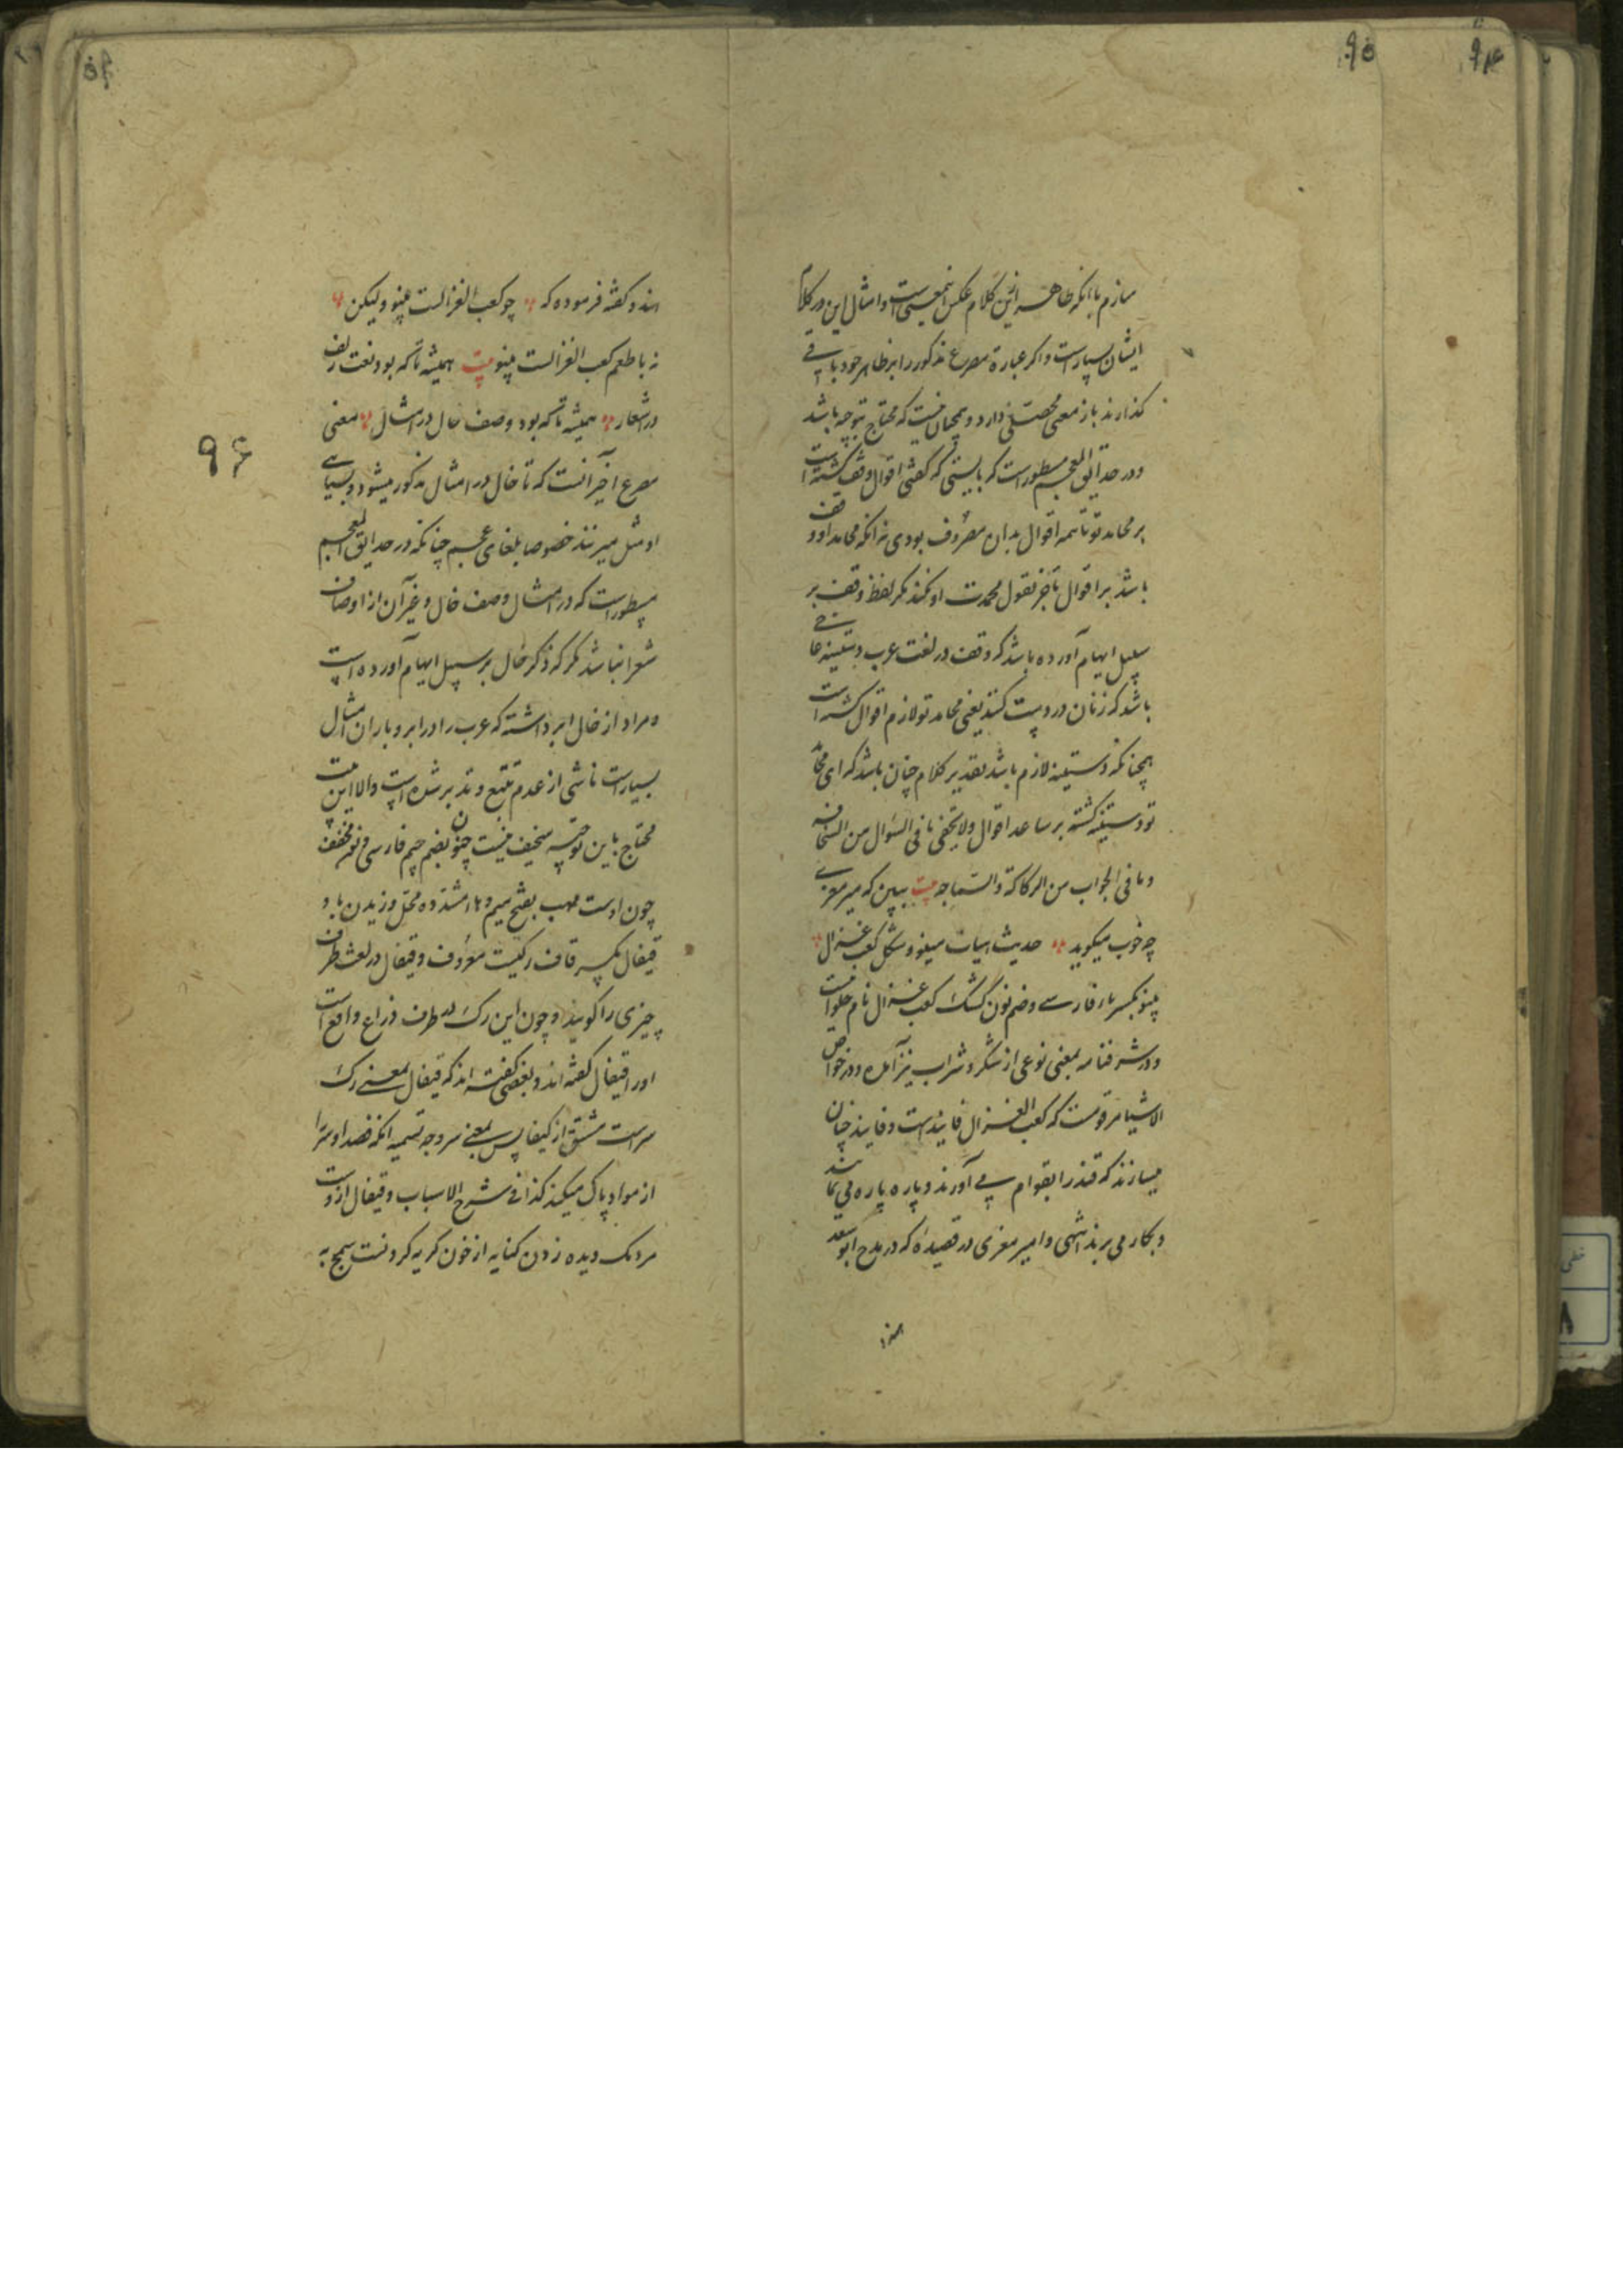 سازم با آنکه ظاهر این کلام عکس اینمعنیست و امثال این در کلام
ایشان بسیارست و اکر عبارة مصرع مذکور را بر ظاهر خود باقی
کذارند باز معنی محصلی دارد و همچنان نیست که محتاج توجیه باشد
و در حدایق المعجم مسطور است که بایستی که کفتی اقوال وقف کشته است
بر محامد تو تا همه اقوال بدان مصروف بودی نه آنکه محامد او وقف
باشد بر اقوال تا جز نقول محمدت او نکند مکر لفظ وقف بر
سبیل ایهام آورده باشد که وقف در لغت عرب دستینه
باشد که زنان در دست کنند یعنی محامد تو لازم اقوال کشته است
همچنانکه دستینه لازم باشد تقدیر کلام چنان باشد که ای محامد
تو دستینه کشته بر ساعد اقوال ولا یخفی ما فی السؤال من السخافه
و ما فی الجواب من الرکاکة والسماجه بیت ببین که میر معزی
چه خوب میکوید حدیث هیات پینو و شکل کعب غزال
پینو بکسر باء فارسی و ضم نون کشک کعب غزال نام حلوائیست
و در شرفنامه بمعنی نوعی از شکر و شراب نیز آمده و در خواص
الاشیا مرقومست که کعب الغزال فانیذست و فانیذ چنان
میسازند که قند را بقوام می آورند و پاره پاره می نمایند
و بکار می برند انتهی و امیر معزی در قصیده که در مدح ابو سعد
هندو کفته فرموده که چو کعب الغزالست پینو ولیکن
نه با طعم کعب الغزالست پینو بیت همیشه تا که بود نعت زلف
در اشعار همیشه تا که بود وصف خال در امثال معنی
مصرع آخر آنست که تا خال در امثال مذکور میشود و بسیاری
او مثل میزنند خصوصا بلغای عجم چنانکه در حدایق المعجم
مسطور است که در امثال وصف خال و غیر آن از اوصاف
شعرا نباشد مکر که ذکر خال بر سبیل ایهام آورده است
و مراد از خال ابر داشته که عرب را در ابر و باران امثال
بسیارست ناشی از عدم تتبع و تدبر شده است و الا این بیت
محتاج باین توجیه سخیف نیست چنو بضم جیم فارسی و نون مخفف
چون اوست مهب بفتح میم و باء مشدده محل وزیدن باد
قیفال بکسر قاف رکیست معروف و قیفال در لغت طرف
چیزی را کویند و چون این رک در طرف ذراع واقع است
او را قیفال کفته اند و بعضی کفته اند که قیفال بمعنی رک
سرست مشتق از کیفالس بمعنی سر وجه تسمیه آنکه فصد او سر را
از مواد پاک میکند کذا فی شرح الاسباب و قیفال از دست
مردمک دیده زدن کنایه از خون کریه کردنست